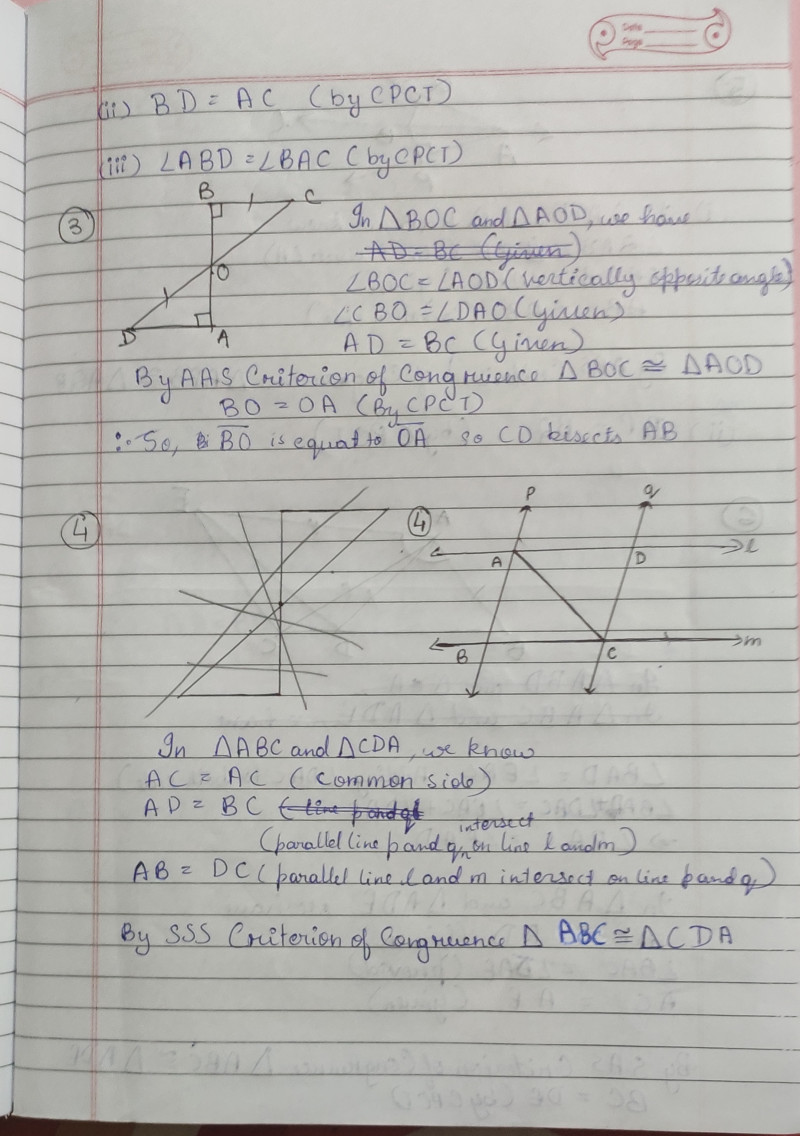 Date
Page
(ii) BD = AC (by CPCT)
(iii) ∠ABD = ∠BAC (by CPCT)
B C
③
In △BOC and △AOD, we have
AD = BC (Given)
O
∠BOC = ∠AOD (vertically opposite angle)
∠CBO = ∠DAO (Given)
D A
AD = BC (Given)
By AAS Criterion of Congruence △BOC ≅ △AOD
BO = OA (By CPCT)
∴ So, BO is equal to OA so CD bisects AB
④ ④
p q
A D l
B C m
In △ABC and △CDA, we know
AC = AC (Common side)
AD = BC (line p and q
(parallel line p and q intersect on line l and m)
AB = DC (parallel line l and m intersect on line p and q)
By SSS Criterion of Congruence △ ABC ≅ △CDA